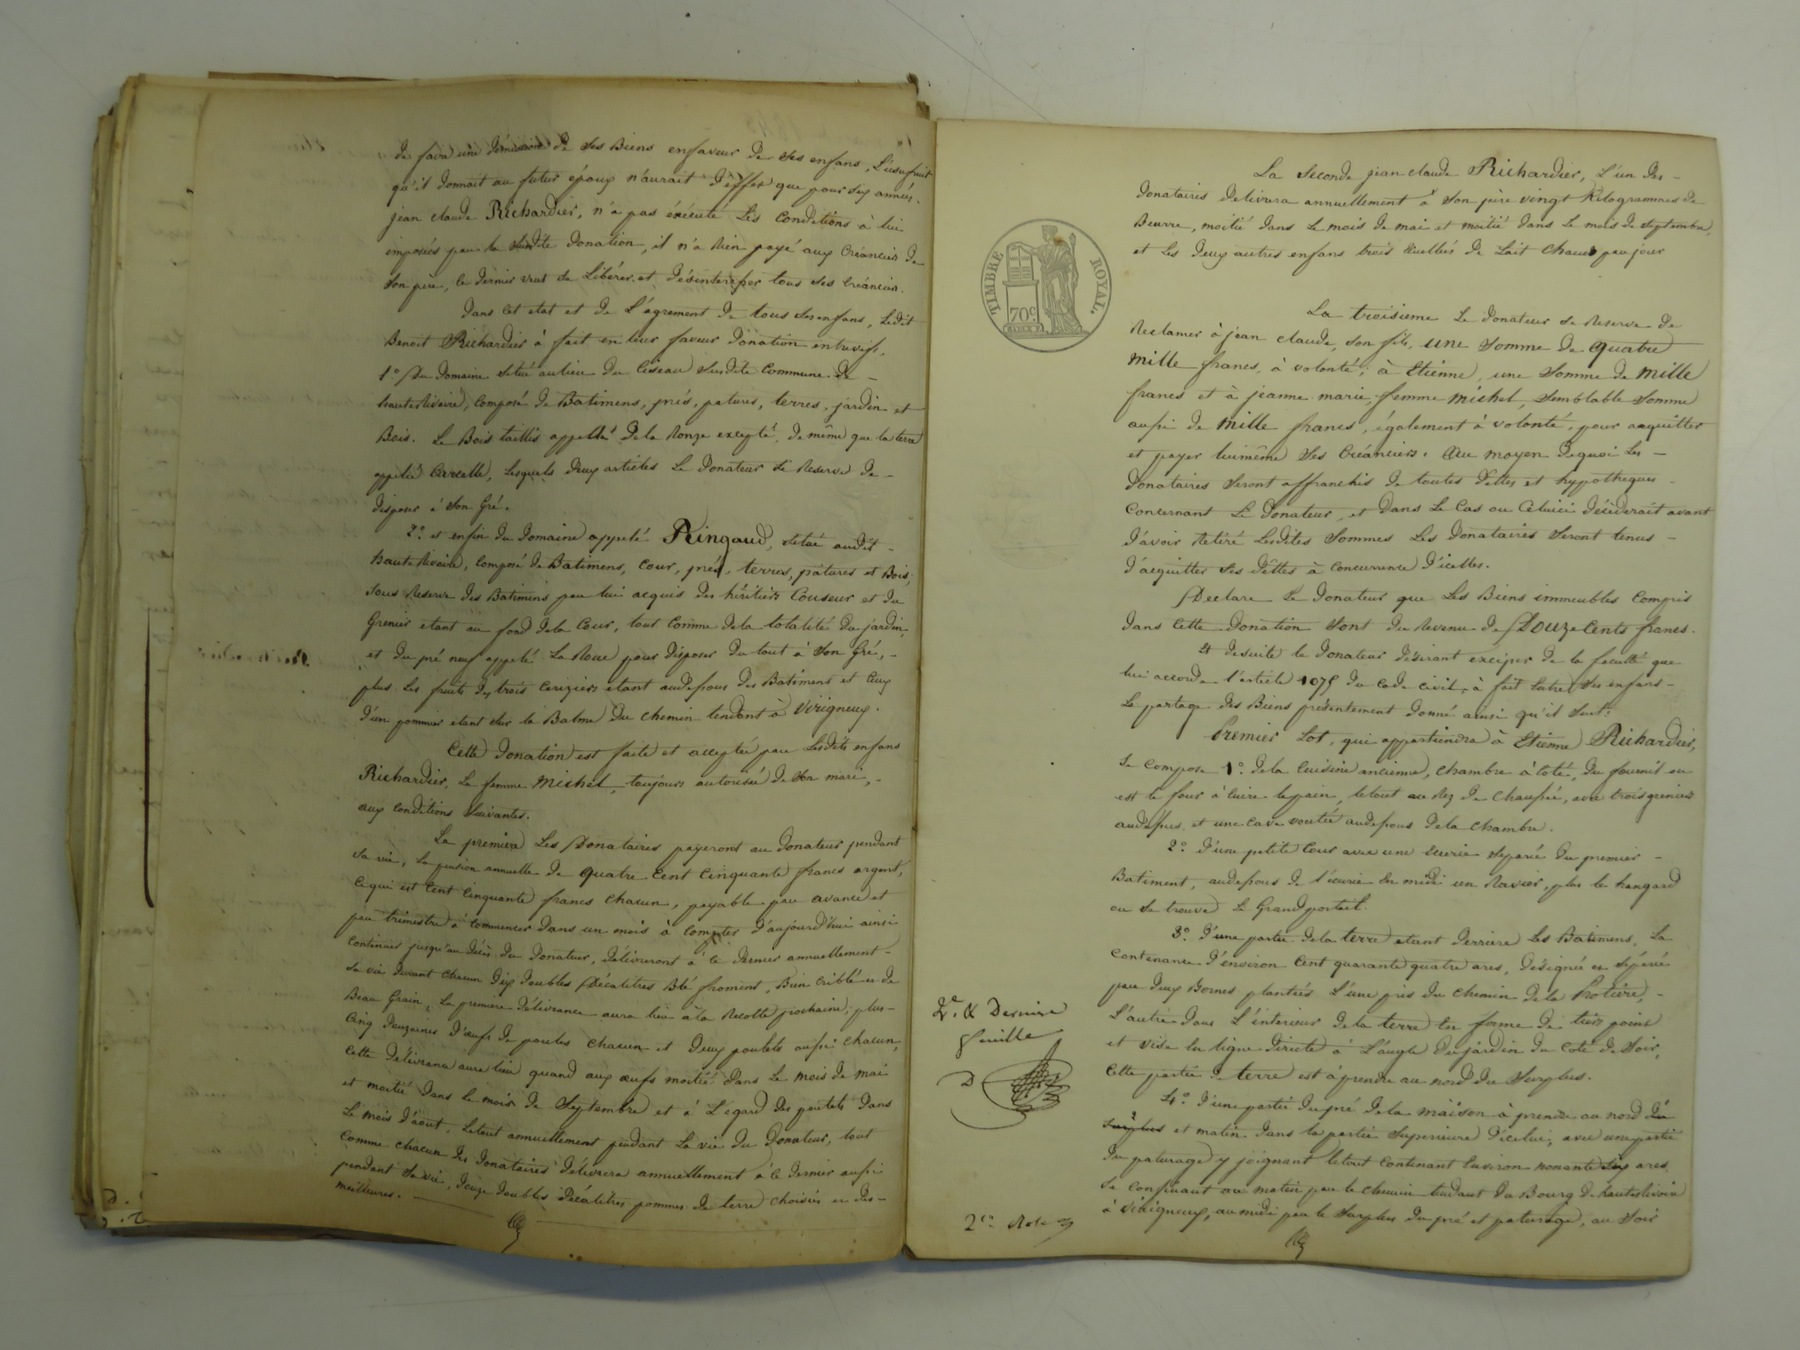 de fara une démission de ses Biens enfaveur de ses enfans, L'usufruit
qu'il donnait au futur époux n'aurait d'effet que pour six années.
jean claude Richardier, n'a pas éxécuté Les Conditions à lui
imposés par la susdite donation, il n'a Rien payé aux Créanciers de
son père, ce dernier veut se Libérer et désinteresser tous ses Créanciers.
Dans Cet etat et de L'agrement de tous ses enfans, Ledit
Benoit Richardier à fait en leur faveur donation entrevifs,
1.° Du Domaine situé aulieu du Cizeau susdite Commune de –
hauterivoire, Composé de Batimens, prés, patures, terres, jardin et
Bois. Le Bois taillis appellé De la Ronze excepté, de même que la terre
appelée Carcelle, Lesquels deux articles Le donateur se Reserve de –
disposer à son Gré.
2.° et enfin du Domaine appelé Ringaud, situé audit –
hauterivoire, Composé de Batimens, Cour, prés, terres, pâtures et Bois,
sous Reserve des Batimens par lui acquis des héritiers Couseur et du
Grenier etant au fond de la Cour, tout Comme de la totalité du jardin,
et du pré neuf appelé La Roue pour disposer du tout à son Gré, –
plus Les fruits des trois Ceriziers etant audessous des Batimens et Ceux
d'un pommier etant sur la Balme du Chemin tendant à Virigneux.
Cette donation est faite et acceptée par Lesdits enfans
Richardier, La femme Michel, toujours autorisée de son mari, –
aux Conditions suivantes.
La première Les Donataires payeront au donateur pendant
sa vie, La pension annuelle de quatre Cent Cinquante francs argent,
Ce qui est Cent Cinquante francs Chacun, payable par avance et
par trimestre à commencer dans un mois à Compter d'aujourd'hui ainsi
Continuer jusqu'au décès du Donateur, délivreront à ce dernier annuellement –
sa vie durant Chacun dix doubles Décalitres Blé froment, Bien Criblé et de
Beau Grain, La première délivrance aura lieu à la Récolte prochaine; plus –
Cinq douzaines d'œufs de poules Chacun et deux poulets aussi Chacun,
Cette délivrance aura lieu quand aux œufs moitié dans Le mois de mai
et moitié dans Le mois de Septembre et à L'égard des poulets dans
Le mois d'aout, Letout annuellement pendant La vie du donateur, tout
Comme chacun des donataires délivrera annuellement à ce dernier aussi
pendant sa vie, douze doubles Décalitres pommes de terre choisies et des –
meilleures.
TIMBRE ROYAL.
70c
La Seconde jean claude Richardier, L'un des –
donataires délivrera annuellement à son père vingt Kilogrammes de
Beurre, moitié dans Le mois de mai et moitié dans Le mois de septembre,
et Les deux autres enfans trois écuellées de Lait Chacun par jour
La troisieme Le donateur se Reserve de
Réclamer à jean claude, son fils, une somme de quatre
mille francs, à volonté; à Etienne, une somme de mille
francs et à jeanne marie, femme michel, semblable somme
aussi de mille francs, également à volonté, pour acquitter
et payer luimême ses Créanciers. Au moyen dequoi Les –
donataires seront affranchis de toutes dettes et hypotheques –
Concernant Le donateur, et dans Le Cas ou Celuici décéderait avant
d'avoir Retiré Lesdites sommes Les donataires seront tenus –
d'acquitter ses dettes à Concurrence d'icelles.
Déclare Le donateur que Les Biens immeubles Compris
dans Cette donation sont du Revenu de Douze Cents francs.
Et desuite le donateur désirant exciper de la faculté que
lui accorde l'article 1075 du Code Civil, à fait Entre ses enfans –
Le partage des Biens présentement donné ainsi qu'il suit:
Premier Lot, qui appartiendra à Etienne Richardier,
se Compose 1.° de la Cuisine ancienne, chambre à côté, du fournil ou
est le four à Cuire le pain, letout au Rez de Chaussée, avec trois greniers
audessus, et une Cave voutée audessous de la chambre.
2.° d'une petite Cour avec une écurie séparée du premier –
Batiment, audessous de l'écurie du midi un Ravier, plus le hangard
ou se trouve Le Grand portail.
3.° d'une partie de la terre etant derrière Les Batimens, La
Contenance d'environ Cent quarante quatre ares, désignée et séparée
par deux Bornes plantées L'une près du chemin de la Potière, –
L'autre dans L'intérieur de la terre en forme de tiers point
et vise en ligne directe à L'angle du jardin du Coté de soir,
Cette partie de terre est à prendre au nord du surplus.
4.° d'une partie du pré de la maison à prendre au nord du
surplus et matin dans la partie superieure d'icelui, avec une partie
du paturage y joignant letout Contenant Environ nonante six ares,
se Confinant au matin par le chemin tendant du Bourg de hauterivoire
à Virigneux, au midi par le surplus du pré et paturage, au soir
2.e & Dernière
feuille
2.en Role